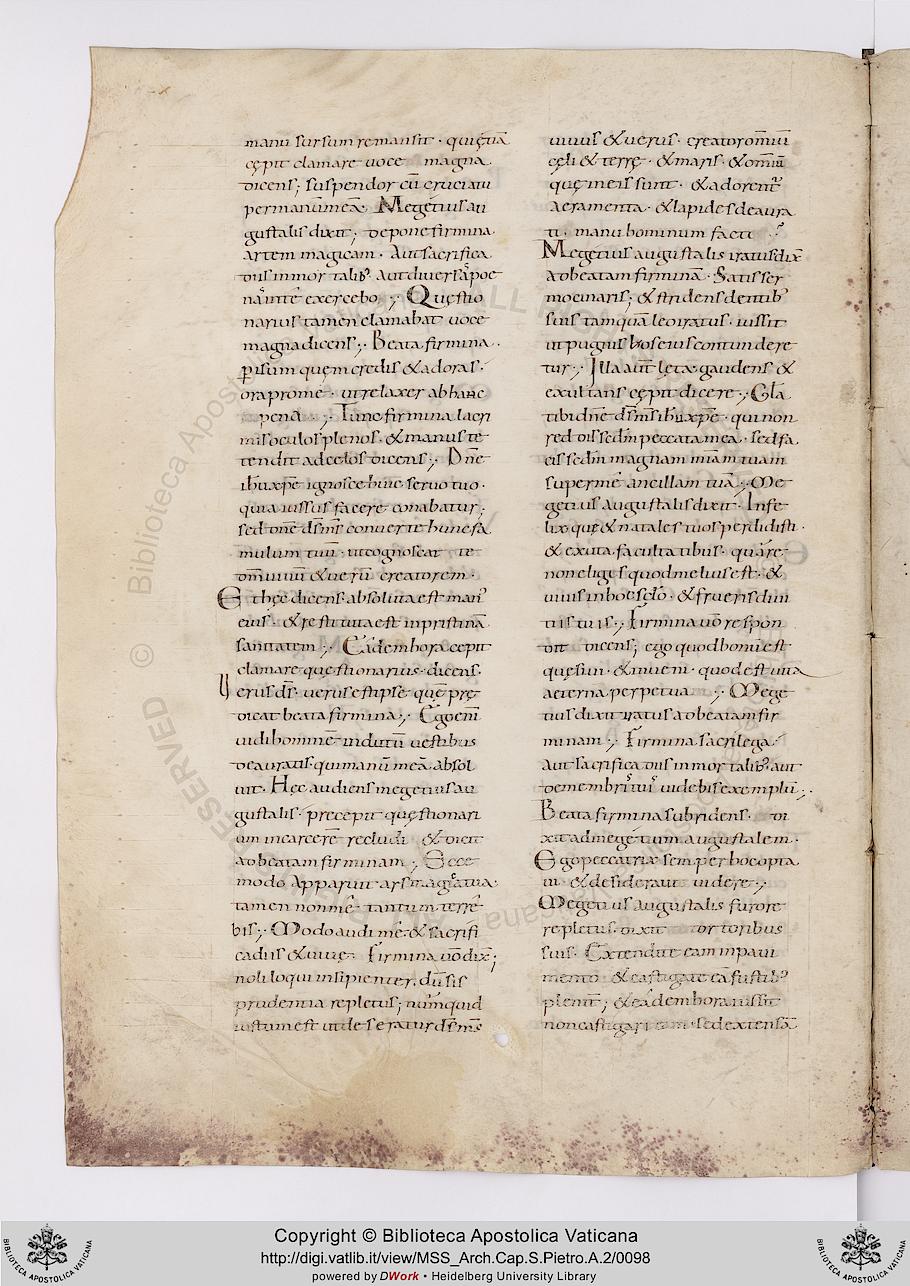 manu sursum remansit · qui &iā
cępit clamare uoce magna
dicens; suspendor cū cruciatu
per manū meā. Megetius au
gustalis dixit; depone firmina
artem magicam · Aut sacrifica
diis inmortalib; aut diuersa poe
na inte exercebo ; Questio
narius tamen clamabat uoce
magna dicens; Beata firmina ·
p ipsum quem credis & adoras ·
ora pro me · ut relaxer ab hanc
pena ; Tunc firmina lacri
mis oculos plenos · & manus te
tendit ad cęlos dicens; Dñe
ihu xpe ignosce huic seruo tuo ·
quia iussus facere conabatur;
sed dñe ds ms conuerte hunc fa
mulum tuū · ut cognoscat te
dm uiuū & uerū creatorem ·
Et hęc dicens · absoluta est man
eius · & restituta est in pristinā
sanitatem ; Eadem hora cępit
clamare questionarius · dicens ·
Uerus ds · uerus est ipse quē prę
dicat beata firmina; Ego eni
uidi hominē indutū uestibus
deauratis · qui manū meā absol
uit · Hęc audiens megetius au
gustalis · precepit questionari
um in carcerē recludi · & dicit
ad beatam firminam ; Ecce
modo apparuit ars magica tua ·
tamen non mē tantum terre
bis; Modo audi mē · & sacrifi
ca diis & uiue · Firmina uō dix;
noli loqui insipienter · dū sis
prudentia repletus; numquid
iustum est ut deseratur ds ms
uiuus & uerus · creator omiū
cęli & terrę · & maris · & omiū
quę in eis sunt · & adorent
aeramenta · & lapides deaura
ti · manu hominum facti ?
Megetius augustalis iratus dix
ad beatam firminā · Satis ser
mocinaris; & stridens dentib;
suis tamquā leo iratus · iussit
ut pugnis hos eius contundere
tur; Illa aut lęta gaudens &
exultans cępit dicere; Gla
tibi dne ds ms ihu xpe · qui non
reddis scdm peccata mea · sed fa
cis scdm magnam miam tuam
super mē ancillam tuā; Me
getius augustalis dixit · Infe
lix que & natales tuos perdidisti ·
& exuta facultatibus · quare
non eligis quod melius est · &
uiuis in hoc sclo · & frueris diui
tiis tuis; Firmina uō respon
dit dicens; ego quod bonū est
quęsiui · & inueni · quod est uita
aeterna perpetua ; Mege
tius dixit iratus ad beatam fir
minam; Firmina sacrilega
aut sacrifica diis inmortalib; aut
de membris tuis uidebis exemplū;
Beata firmina subridens · di
xit ad megetium augustalem ·
Ego peccatrix semper hoc opta
ui · & desideraui uidere;
Megetius augustalis furore
repletus · dixit tortoribus
suis · Extendite eam in paui
mento · & castigate eā fustib;
plenit; & eadem hora iussit
non castigari eam · sed extensā
Copyright © Biblioteca Apostolica Vaticana
http://digi.vatlib.it/view/MSS_Arch.Cap.S.Pietro.A.2/0098
powered by DWork • Heidelberg University Library